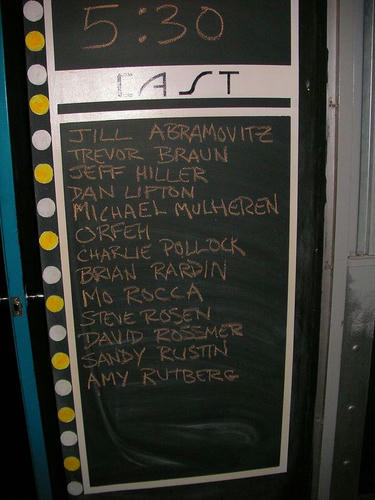 5:30
CAST
JILL ABRAMOVITZ
TREVOR BRAUN
JEFF HILLER
DAN LIPTON
MICHAEL MULHEREN
ORFEH
CHARLIE POLLOCK
BRIAN RARDIN
MO ROCCA
STEVE ROSEN
DAVID ROSSMER
SANDY RUSTIN
AMY RUTBERG